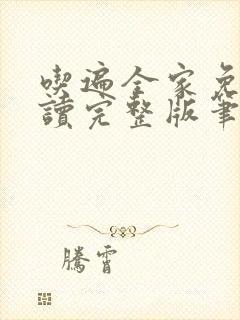 喫遍全家免
讀完整版筆
騰霄